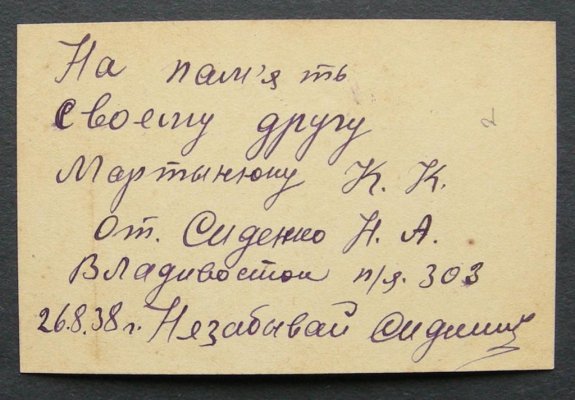 На пам'ять
Своему другу
Мартынюку К. К.
От. Сиденко Н. А.
Владивосток п/я. 303
26.8.38 г. Незабывай